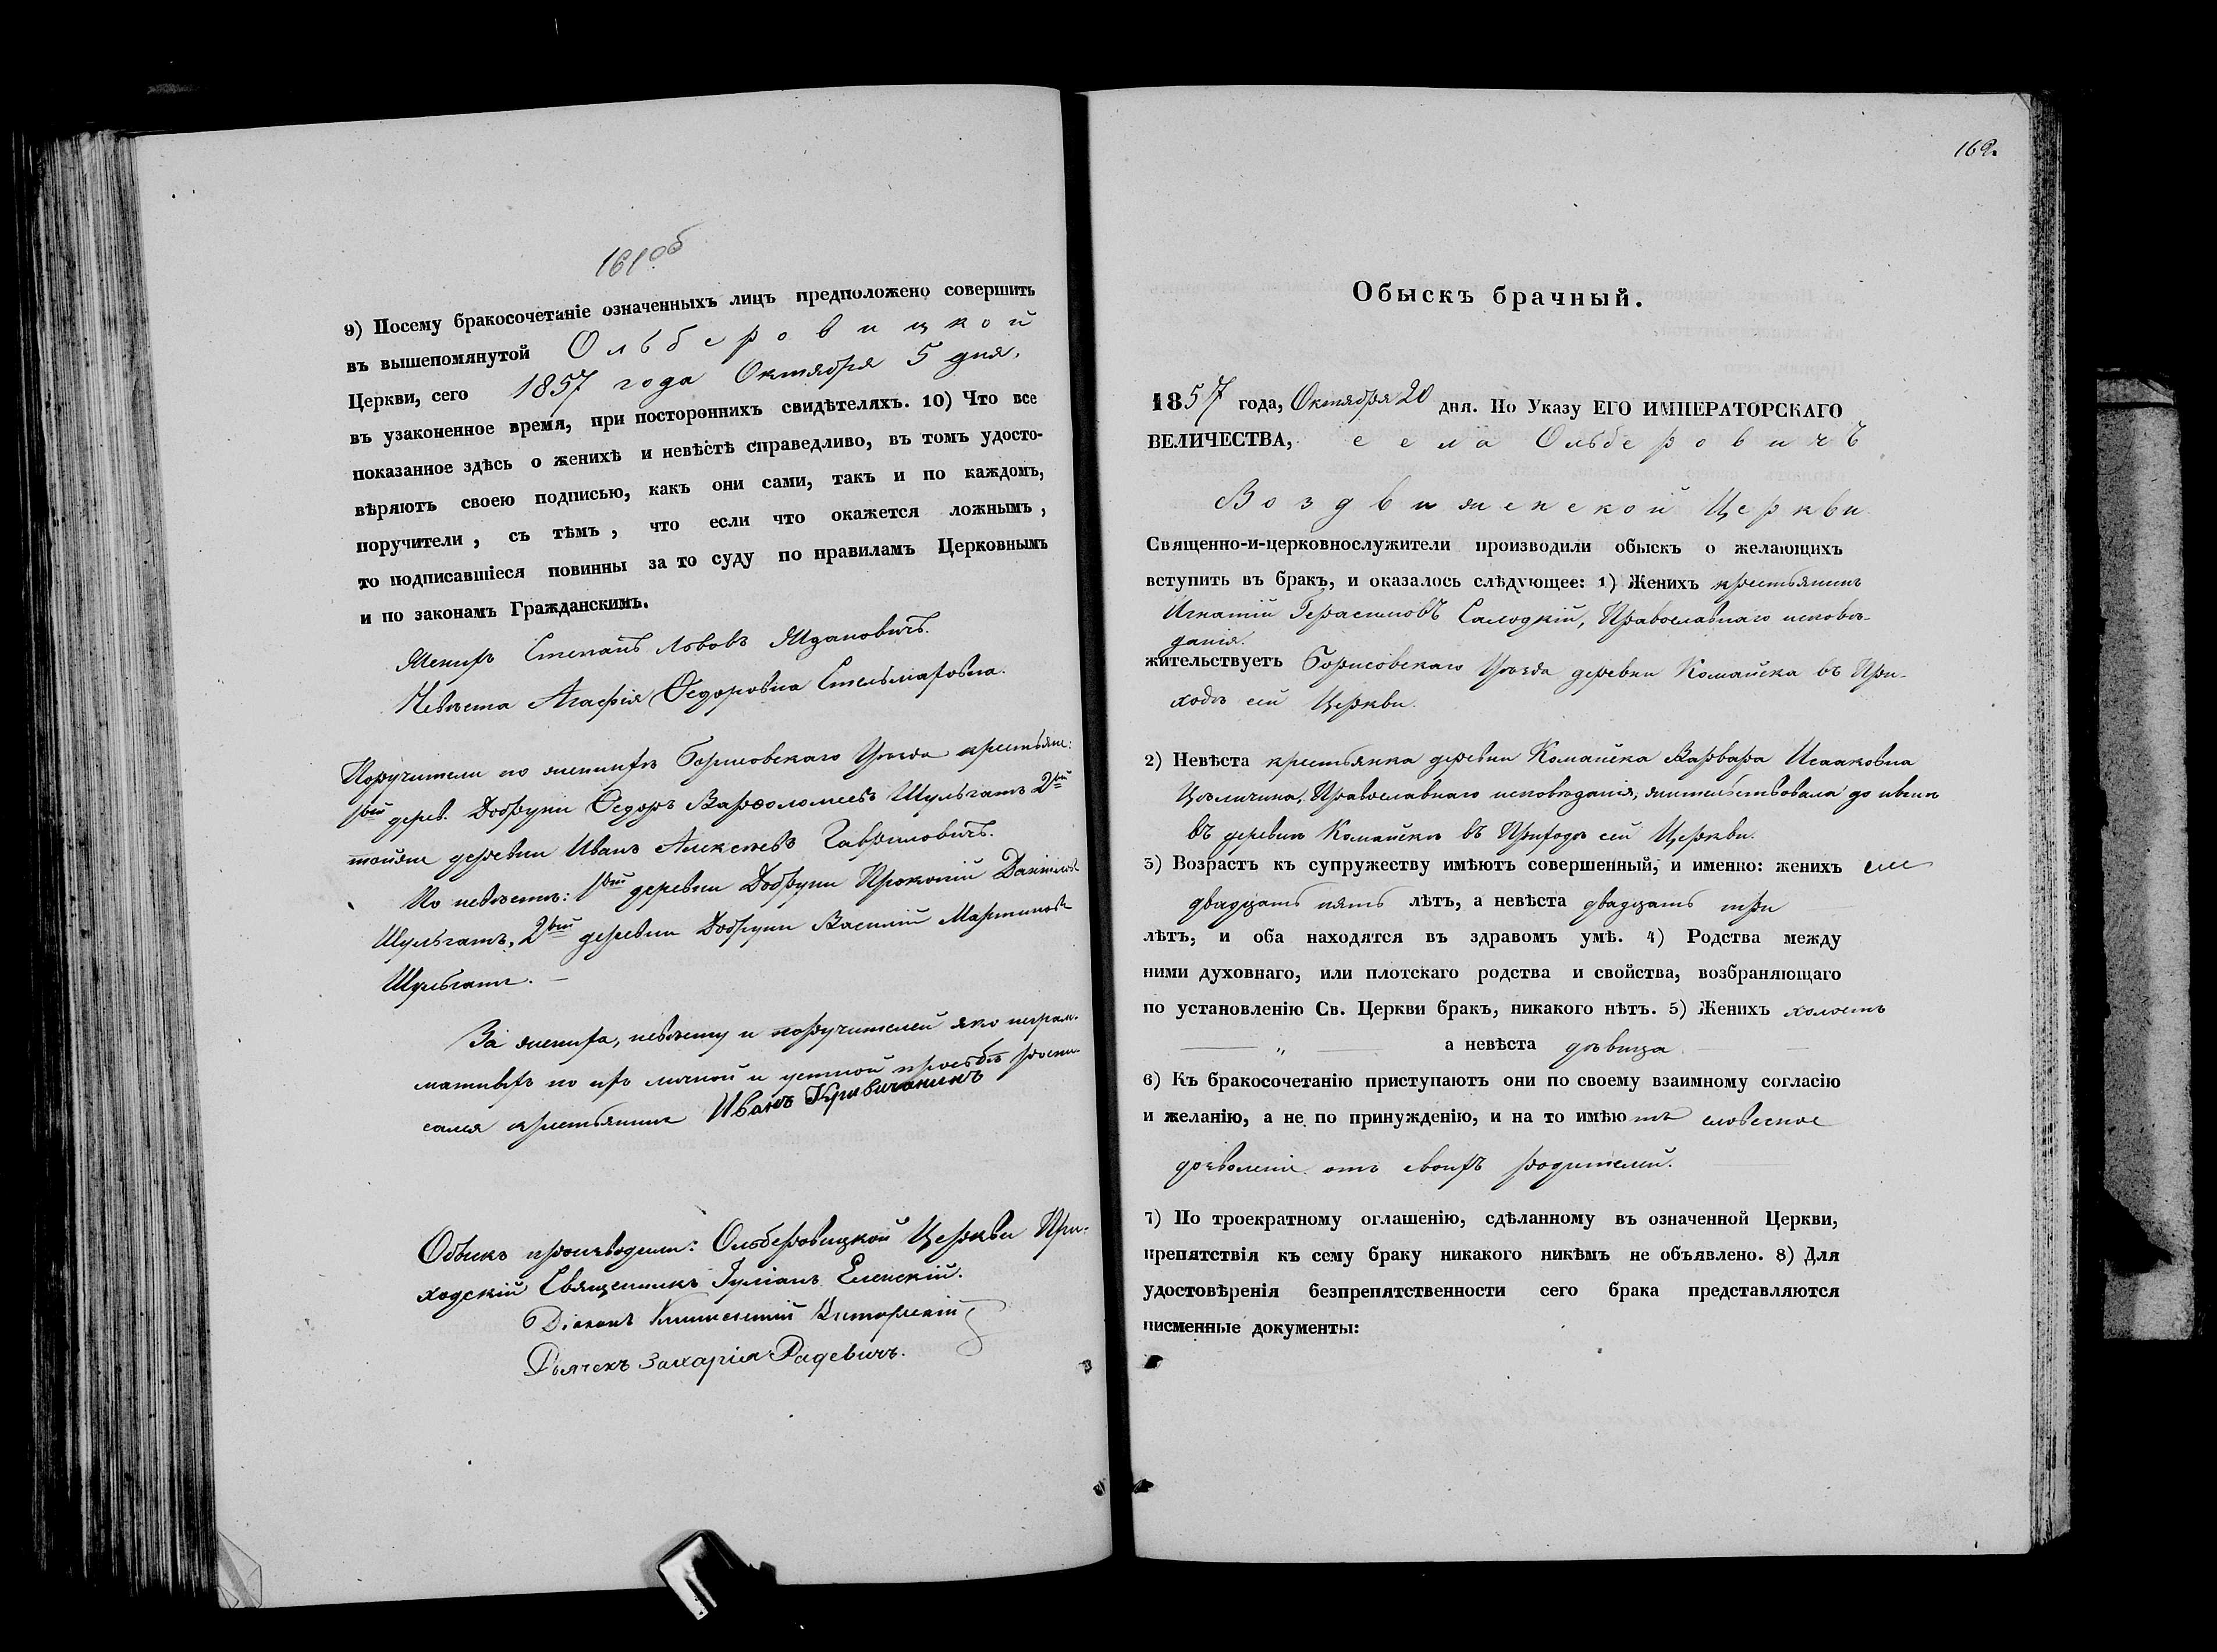 161об
9) Посему бракосочетаніе означенныхъ лицъ предположено совершить
въ вышепомянутой Ольберовицкой
Церкви, сего 1857 года Октября 5 дня,
въ узаконенное время, при постороннихъ свидѣтеляхъ. 10) Что все
показанное здѣсь о женихѣ и невѣстѣ справедливо, въ томъ удосто-
вѣряютъ своею подписью, какъ они сами, такъ и по каждомъ,
поручители, съ тѣмъ, что если что окажется ложнымъ,
то подписавшіеся повинны за то суду по правиламъ Церковнымъ
и по законамъ Гражданскимъ.
Женихъ Степанъ Львовъ Ждановичъ.
Невѣста Агафія Ѳедоровна Стельмаховна.
Поручители по женихѣ Борисовскаго Уѣзда крестьяне:
1вый дерев. Добруни Ѳедоръ Варѳоломеевъ Шульганъ 2вый
тойже деревни Иванъ Алексѣевъ Гавриловичъ.
По невѣстѣ: 1вый деревни Добруни Прокопій Даниловъ
Шульганъ, 2вый деревни Добруни Василій Мартиновъ
Шульганъ.
За жениха, невѣсту и поручителей яко неграм-
матныхъ по ихъ личной и устной просьбѣ роспи-
сался крестьянинъ Иванъ Кривичанинъ
Обыскъ производили: Ольберовицкой Церкви При-
ходскій Священникъ Іуліанъ Еленскій.
Діаконъ
Дьячекъ Захарія Радевичъ.
162.
Обыскъ брачный.
1857 года, Октября 20 дня. По Указу ЕГО ИМПЕРАТОРСКАГО
ВЕЛИЧЕСТВА, села Ольберовичъ
Воздвиженской Церкви
Священно-и-церковнослужители производили обыскъ о желающихъ
вступить въ бракъ, и оказалось слѣдующее: 1) Женихъ крестьянинъ
Игнатій Герасимовъ Салодкій, Православнаго исповѣ-
данія.
жительствуетъ Борисовскаго Уѣзда деревни Комайска въ При-
ходѣ сей Церкви.
2) Невѣста крестьянка деревни Комайска Варвара Исааковна
Православнаго исповѣданія, жительствовала до нынѣ
въ деревнѣ Комайскѣ въ Приходѣ сей Церкви.
3) Возрастъ къ супружеству имѣютъ совершенный, и именно: женихъ
двадцать пять лѣтъ, а невѣста двадцать три
лѣтъ, и оба находятся въ здравомъ умѣ. 4) Родства между
ними духовнаго, или плотскаго родства и свойства, возбраняющаго
по установленію Св. Церкви бракъ, никакого нѣтъ. 5) Женихъ холостъ
„ а невѣста дѣвица
6) Къ бракосочетанію приступаютъ они по своему взаимному согласію
и желанію, а не по принужденію, и на то имѣютъ словесное
дозволеніе отъ своихъ родителей.
7) По троекратному оглашенію, сдѣланному въ означенной Церкви,
препятствія къ сему браку никакого никѣмъ не объявлено. 8) Для
удостовѣренія безпрепятственности сего брака представляются
писменные документы: